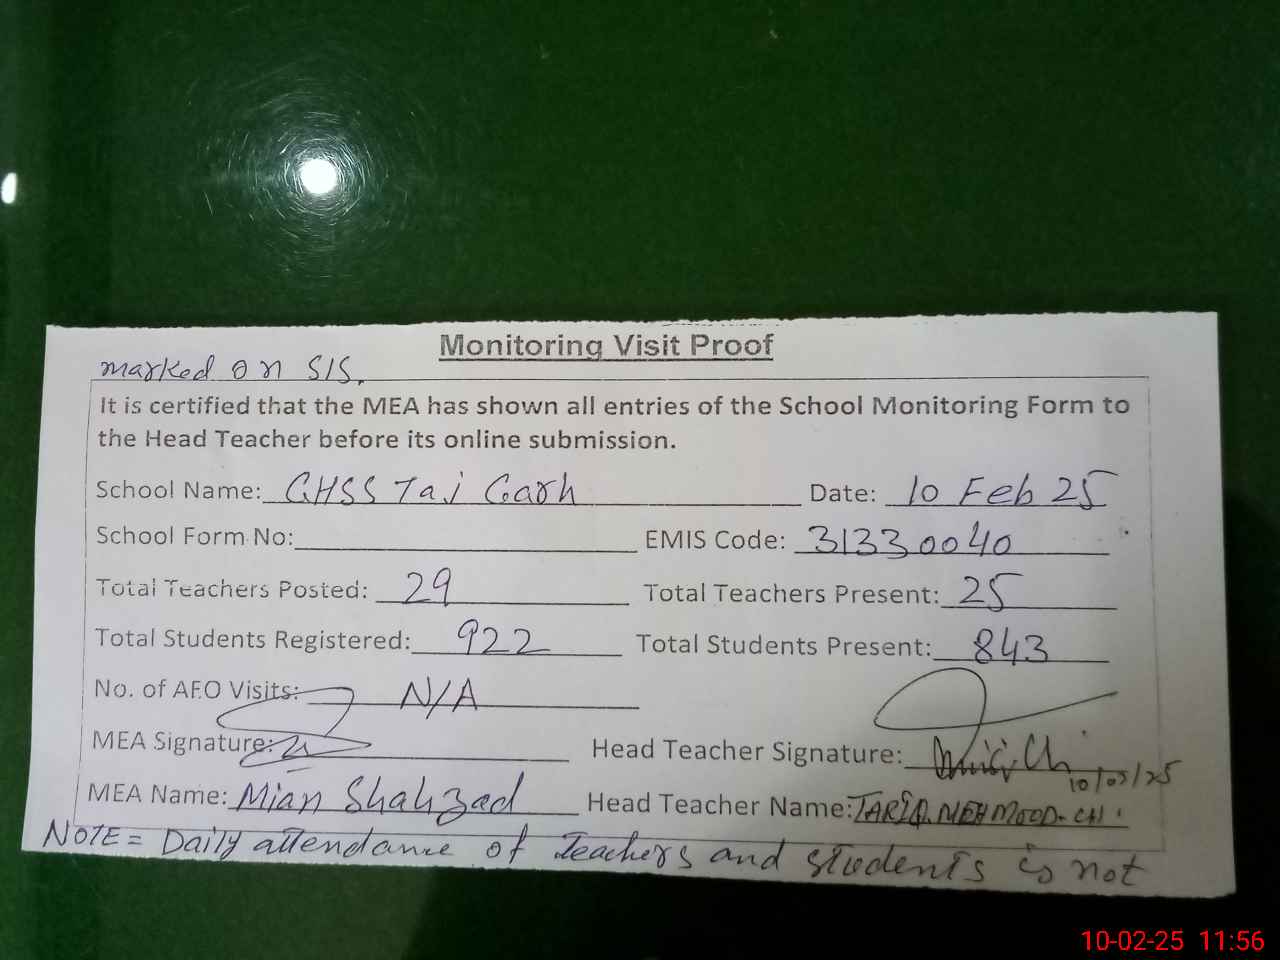 Monitoring Visit Proof
marked on SIS.
It is certified that the MEA has shown all entries of the School Monitoring Form to
the Head Teacher before its online submission.
School Name: GHSS Taj Garh Date: 10 Feb 25
School Form No: EMIS Code: 31330040
Total Teachers Posted: 29 Total Teachers Present: 25
Total Students Registered: 922 Total Students Present: 843
No. of AEO Visits: N/A
MEA Signature: Head Teacher Signature: 10/02/25
MEA Name: Mian Shahzad Head Teacher Name: TARIQ MEHMOOD. CH.
NOTE = Daily attendance of Teachers and students is not
10-02-25 11:56